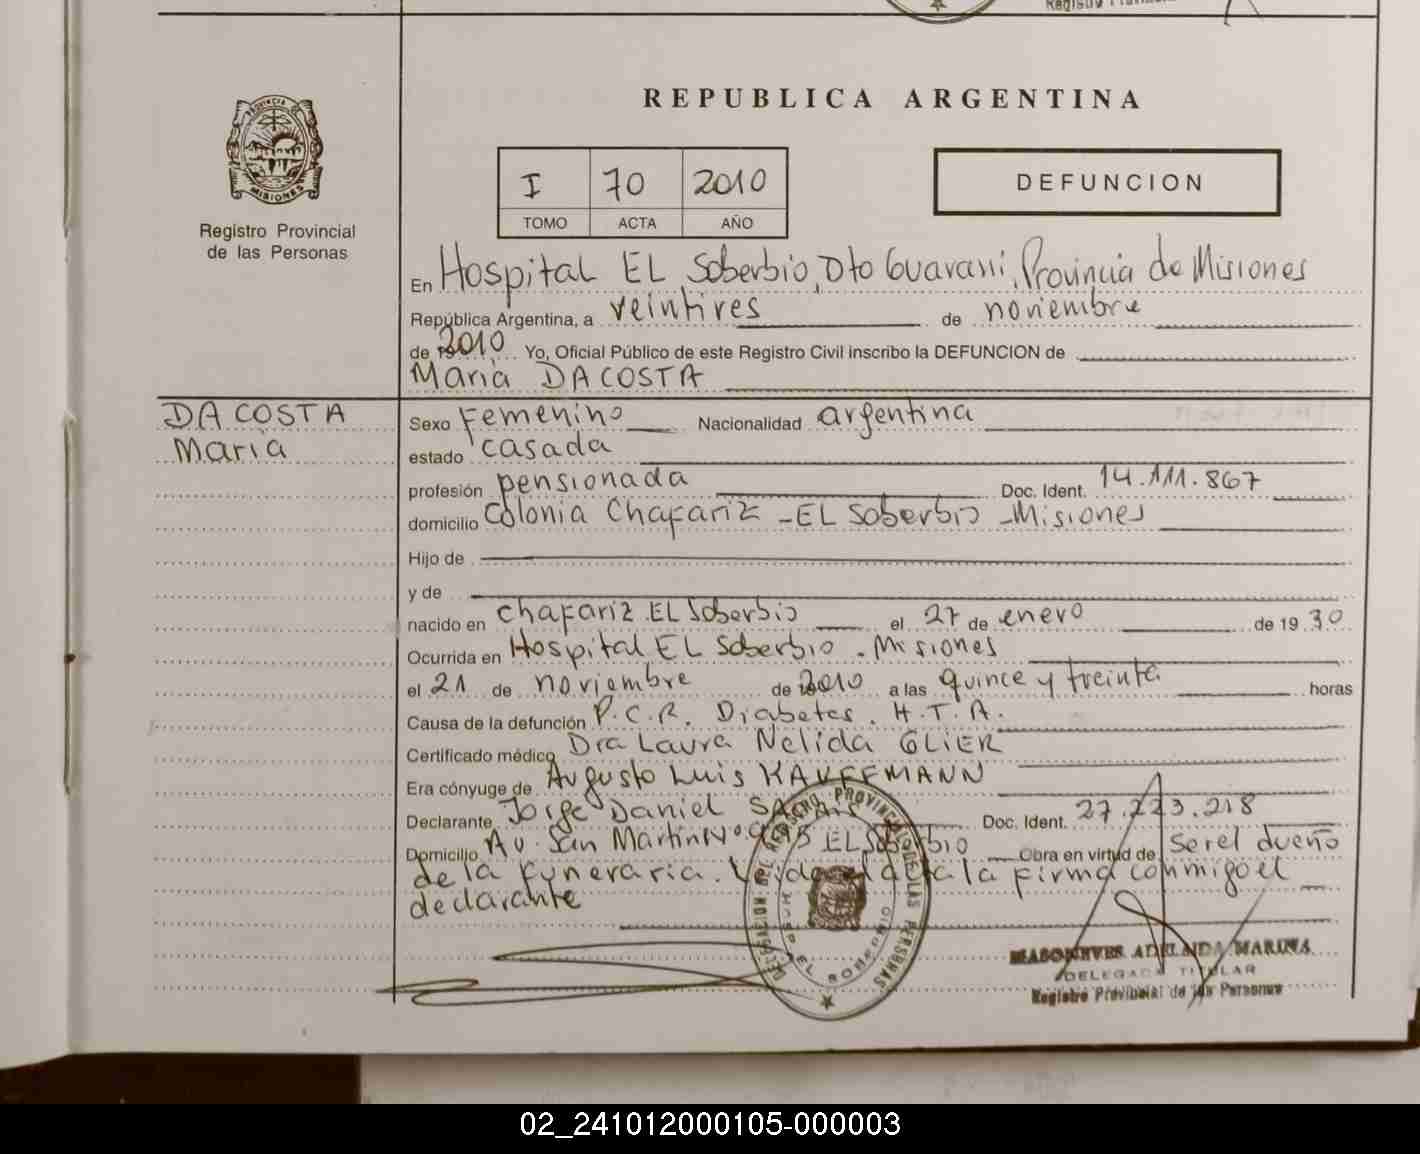 REPUBLICA ARGENTINA
I 70 2010
TOMO ACTA AÑO
DEFUNCION
MISIONES
Registro Provincial
de las Personas
En Hospital EL Soberbio, Dto Guarani, Provincia de Misiones
República Argentina, a veintitres de noviembre
de 2010 Yo, Oficial Público de este Registro Civil inscribo la DEFUNCION de
Maria DA COSTA
DA COSTA
Maria
Sexo Femenino Nacionalidad argentina
estado casada
profesión pensionada Doc. Ident. 14.111.867
domicilio Colonia Chafariz - EL Soberbio - Misiones
Hijo de
y de
nacido en Chafariz EL Soberbio el 27 de enero de 1930
Ocurrida en Hospital EL Soberbio - Misiones
el 21 de noviembre de 2010 a las quince y treinta horas
Causa de la defunción P.C.R. Diabetes. H.T.A.
Certificado médico Dra Laura Nelida GLIER
Era cónyuge de Augusto Luis KAUFFMANN
Declarante Jorge Daniel Doc. Ident. 27.223.218
Domicilio Av. San Martin Nº EL Soberbio Obra en virtud de ser el dueño
de la funeraria. Leida el acta la firma conmigo el
declarante
REGISTRO PROVINCIAL DE LAS PERSONAS
EL SOBERBIO
ADELAIDA MARINA
DELEGADA TITULAR
Registro Provincial de las Personas
02_241012000105-000003